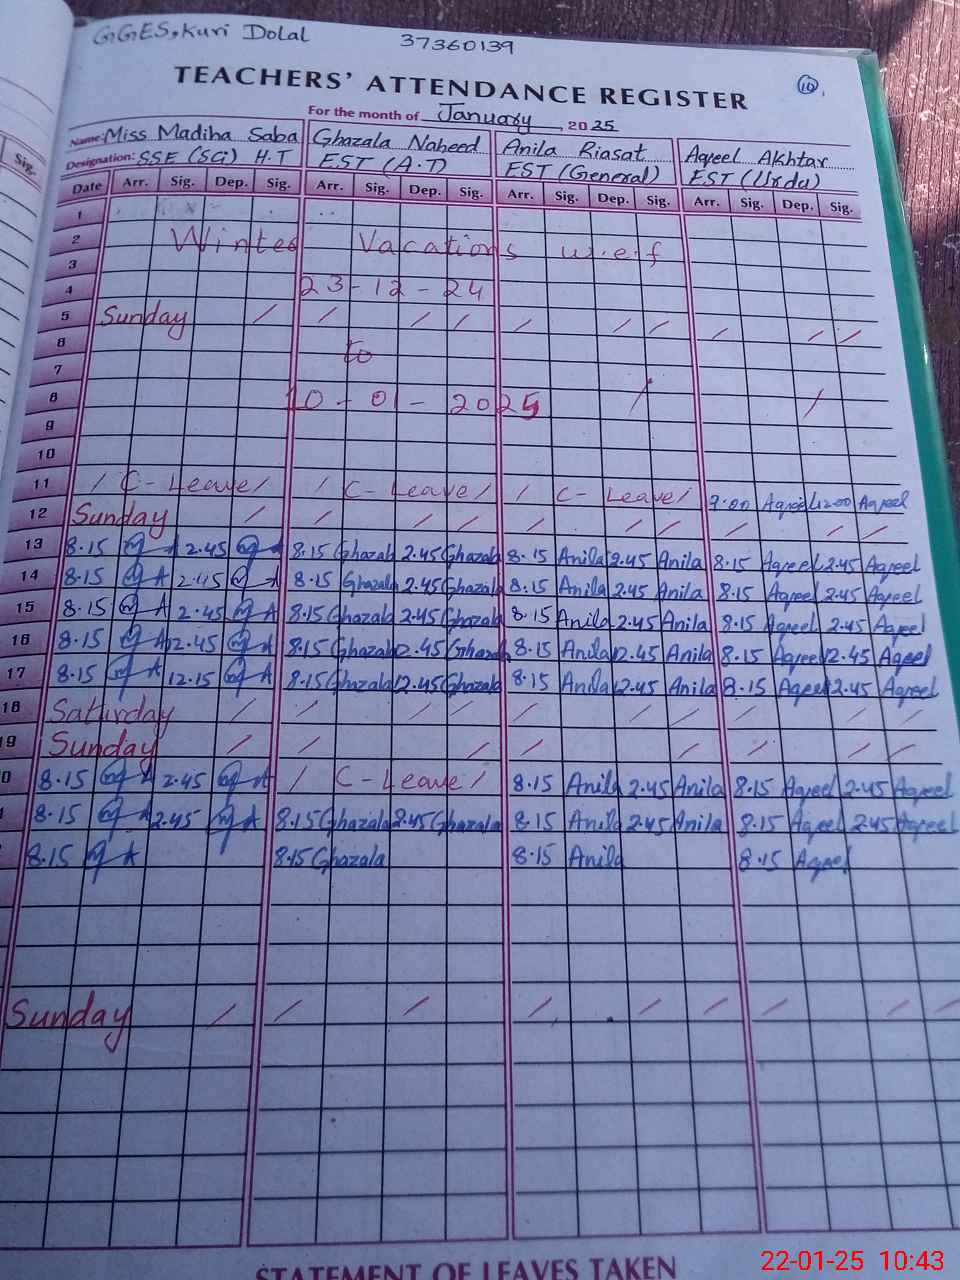 GGES, Kuri Dolal 37360139
10
TEACHERS' ATTENDANCE REGISTER
For the month of January, 2025
Name: Miss Madiha Saba Ghazala Naheed Anila Riasat Aqeel Akhtar
Designation: SSE (Sci) H.T EST (A.T) EST (General) EST (Urdu)
Sig. Date Arr. Sig. Dep. Sig. Arr. Sig. Dep. Sig. Arr. Sig. Dep. Sig. Arr. Sig. Dep. Sig.
1
2 Winter Vacations w.e.f
3
4 23-12-24
5 Sunday / / / / / / / / / /
6
7 to
8 10-01-2025 / /
9
10
11 / C-Leave / / C-Leave / / C-Leave / Aqeel 12.00 Aqeel
12 Sunday / / / / / / / / / /
13 8.15 2.45 8.15 Ghazala 2.45 Ghazala 8.15 Anila 2.45 Anila 8.15 Aqeel 2.45 Aqeel
14 8.15 2.45 8.15 Ghazala 2.45 Ghazala 8.15 Anila 2.45 Anila 8.15 Aqeel 2.45 Aqeel
15 8.15 2.45 8.15 Ghazala 2.45 Ghazala 8.15 Anila 2.45 Anila 8.15 Aqeel 2.45 Aqeel
16 8.15 12.45 8.15 Ghazala 2.45 Ghazala 8.15 Anila 12.45 Anila 8.15 Aqeel 12.45 Aqeel
17 8.15 12.15 8.15 Ghazala 12.45 Ghazala 8.15 Anila 12.45 Anila 8.15 Aqeel 12.45 Aqeel
18 Saturday / / / / / / / / / /
19 Sunday / / / / / / / /
0 8.15 2.45 / C-Leave / 8.15 Anila 2.45 Anila 8.15 Aqeel 2.45 Aqeel
8.15 2.45 8.15 Ghazala 2.45 Ghazala 8.15 Anila 2.45 Anila 8.15 Aqeel 2.45 Aqeel
8.15 8.15 Ghazala 8.15 Anila 8.15 Aqeel
Sunday / / / / / / / / /
STATEMENT OF LEAVES TAKEN
22-01-25 10:43